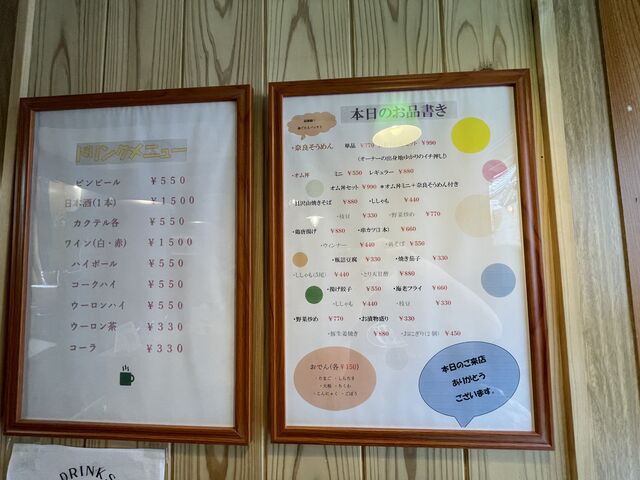 ドリンクメニュー
ビンビール ￥５５０
日本酒(１本) ￥１５００
カクテル各 ￥５５０
ワイン(白・赤) ￥１５００
ハイボール ￥５５０
コークハイ ￥５５０
ウーロンハイ ￥５５０
ウーロン茶 ￥３３０
コーラ ￥３３０
DRINKS
本日のお品書き
・奈良そうめん 単品 ￥770 ￥990
(オーナーの出身地ゆかりのイチ押し)
・オム丼 ミニ ￥550 レギュラー ￥880
オム丼セット ￥990 ＊オム丼ミニ＋奈良そうめん付き
焼きそば ￥880 ・ししゃも ￥440
・枝豆 ￥330 ・野菜炒め ￥770
・鶏唐揚げ ￥880 ・串カツ(3本) ￥660
・ウィンナー ￥440 ￥550
・瓶詰豆腐 ￥330 ・焼き茄子 ￥330
・ししゃも(5尾) ￥440 ・とり天甘酢 ￥880
・揚げ餃子 ￥550 ・海老フライ ￥660
・ししゃも ￥440 ・枝豆 ￥330
・野菜炒め ￥770 ・お漬物盛り ￥330
・豚生姜焼き ￥880 ・おにぎり(２個) ￥450
おでん(各￥150)
・たまご ・しらたき
・大根 ・ちくわ
・こんにゃく ・ごぼう
本日のご来店
ありがとう
ございます。